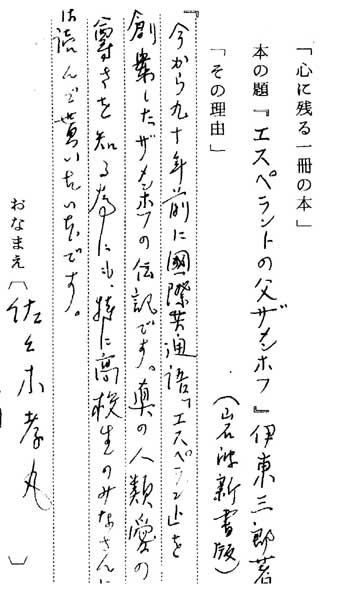 「心に残る一冊の本」
本の題『エスペラントの父ザメンホフ』伊東三郎著
(岩波新書版)
「その理由」
『今から九十年前に國際共通語「エスペラント」を
創案したザメンホフの伝記です。真の人類愛の
尊さを知る為にも、特に高校生のみなさんに
は読んで貰いたい本です。
おなまえ〔佐々木孝丸〕